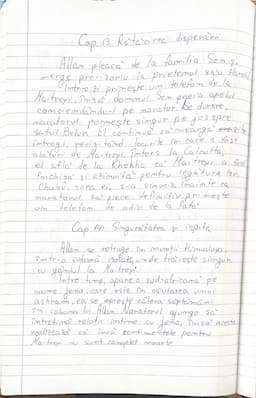 Cap 13 Rătăcirea disperării
Allan pleacă de la familia Sen și
merge provizoriu la prietenul său Harold
Într-o zi primește un telefon de la
Maitreyi, însă domnul Sen oprea apelul,
naratorul pornește singur pe jos spre
satul Belur. El continuă să meargă
întregi, revizitând locurile în care a fost
alături de Maitreyi. Întors la Calcutta,
el află de la Khokha că Maitreyi a fost
închisă și chinuită pentru legătura lor.
Chabù, sora ei, s-a sinucis. Înainte ca
naratorul să plece definitiv primește
un telefon de adio de la fată
Cap 14 Singurătatea și ispita
Allan se retrage în munții Himalaya,
într-o cabană izolată, unde trăiește singur
cu gândul la Maitreyi.
Între timp, apare o sud-africană pe
nume Jenia care este în căutarea unui
ashram, ea se oprește câteva săptămâni
în cabana lui Allan. Naratorul ajunge să
întrețină relații intime cu Jenia, însă acesta
realizează că încă sentimentele pentru
Maitreyi nu sunt complet moarte